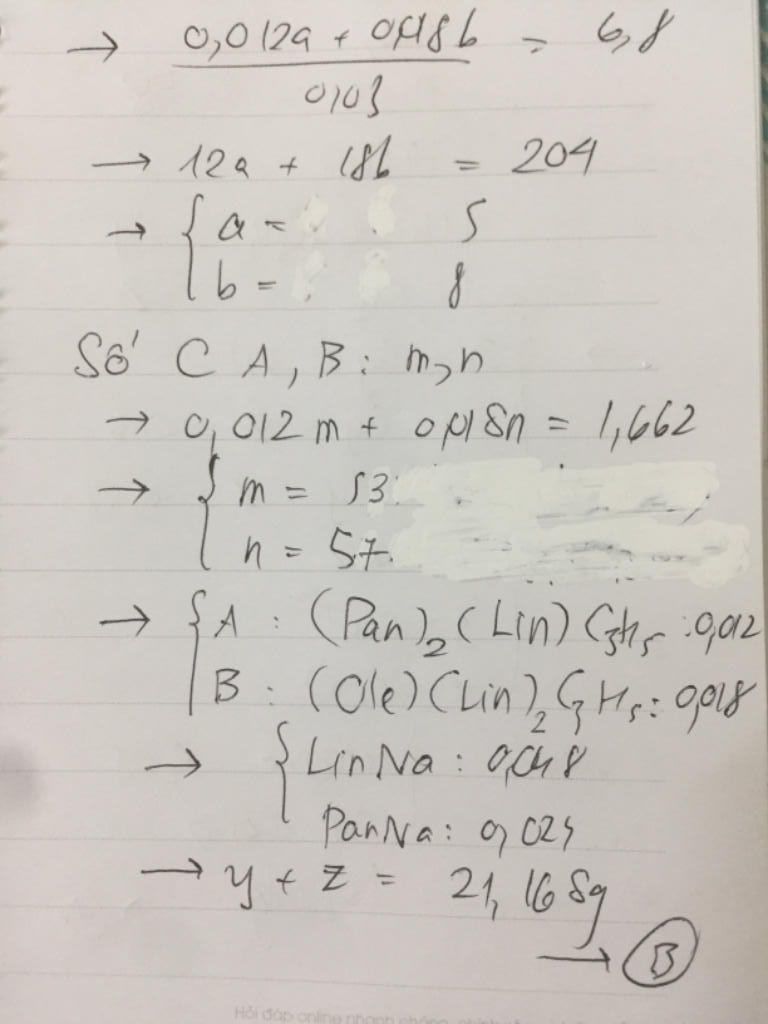 → 0,012a + 0,018b = 6,8
0,03
→ 12a + 18b = 204
→ { a = 5
b = 8
Số C A, B : m, n
→ 0,012m + 0,018n = 1,662
→ { m = 53
n = 57
→ { A : (Pan)₂(Lin)C₃H₅ : 0,012
B : (Ole)(Lin)₂C₃H₅ : 0,018
→ { LinNa : 0,048
PanNa : 0,024
→ y + z = 21,168g
→ B